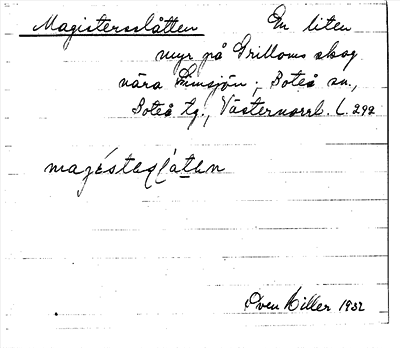 Magistersslåtten En liten
myr på Grilloms skog
nära Simsjön; Boteå sn,
Boteå tg., Västernorrl. l. 292
Sven Hiller 1932